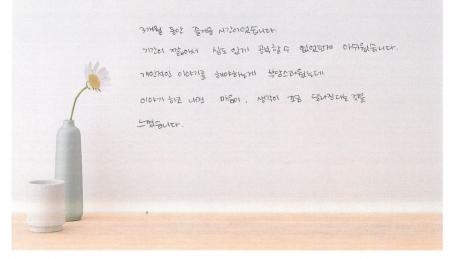 3개월 동안 즐거운 시간이었습니다.
기간이 짧아서 심도 있게 공부할 수 없었던게 아쉬웠습니다.
개인적인 이야기를 해야하는게 부담스러웠는데
이야기 하고 나면 마음이, 생각이 조금 달라진다는 것을
느꼈습니다.